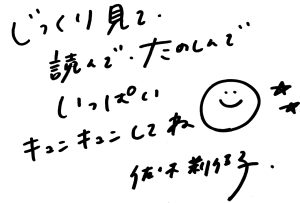 じっくり見て、
読んで、たのしんで
いっぱい
キュンキュンしてね
佐々木莉佳子.